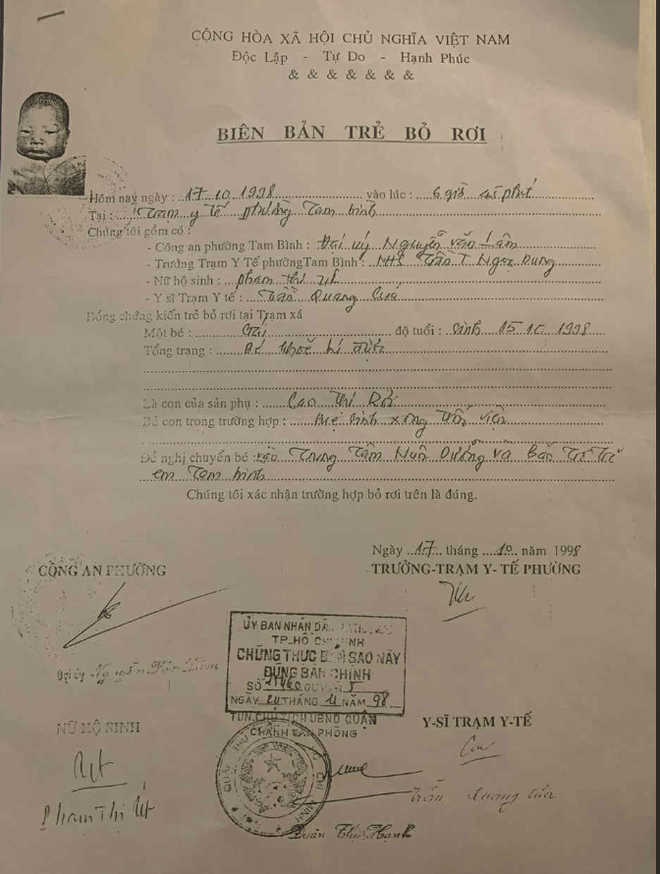 CỘNG HÒA XÃ HỘI CHỦ NGHĨA VIỆT NAM
Độc Lập - Tự Do - Hạnh Phúc
& & & & & & &
BIÊN BẢN TRẺ BỎ RƠI
Hôm nay ngày : 17.10.1998 vào lúc : 6 giờ phút
Tại : Trạm y tế phường Tam Bình
Chúng tôi gồm có :
- Công an phường Tam Bình : Đại úy Nguyễn Văn Lâm
- Trưởng Trạm Y Tế phường Tam Bình : NHS Trần T Ngọc Dung
- Nữ hộ sinh : Phạm Thị Út
- Y sĩ Trạm Y tế : Trần Quang
Đồng chứng kiến trẻ bỏ rơi tại Trạm xá
Một bé : Gái độ tuổi : Sinh 15.10.1998
Tổng trạng : Bé khoẻ
Là con của sản phụ : Cao Thị
Bỏ con trong trường hợp : sinh xong trốn viện
Đề nghị chuyển bé : Trung Tâm Nuôi Dưỡng và Bảo Trợ Trẻ
em Tam Bình
Chúng tôi xác nhận trường hợp bỏ rơi trên là đúng.
Ngày 17 tháng 10 năm 1998
CÔNG AN PHƯỜNG
TRƯỞNG-TRẠM Y- TẾ PHƯỜNG
Đại úy Nguyễn Văn Lâm
ỦY BAN NHÂN DÂN
TP.HỒ CHÍ MINH
CHỨNG THỰC BẢN SAO NÀY
ĐÚNG BẢN CHÍNH
SỐ QUYỂN 5
NGÀY 24 THÁNG 11 NĂM 98
TUN.CHỦ TỊCH UBND QUẬN
CHÁNH VĂN PHÒNG
NỮ HỘ SINH
Y-SĨ TRẠM Y-TẾ
Út
Phạm Thị Út
Trần Quang
Đoàn Thị Hạnh